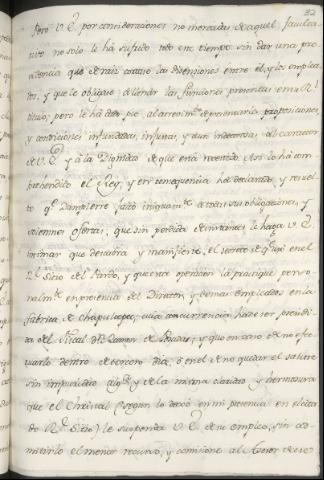 32
Pero V.E. por consideraciones no merecidas de aquel faculta
tivo no solo le ha sufrido todo este tiempo sin dar una pro
videncia que de raiz cortase las disensiones entre él, y los emplea
dos, y que le obligase á llenar las funciones prescritas en su R.l
titulo; pero le ha dado pie al atrevim.to de proponerla proposiciones,
y condiciones infundadas, injustas, y aun indecorosas al caracter
de V.E. y á la Dignidad de que está revestido. Asi lo ha com
prehendido el Rey, y en consequencia ha declarado, y resuel
to q.e Dampierre faltó iniquam.te á todas sus obligaciones, y
solemnes ofertas; que sin perdida de instantes le haga V.E.
intimar que descubra y manifieste el secreto de q.e usó en el
R.l Sitio del Pardo, y que este operacion la practique perso
nalm.te en presencia del Director, y demas empleados en la
fabrica de Chapultepec; cuya concurrencia hade ser presidi
da del Fiscal D.n Ramon de Posada; y que en caso de no efec
tuarlo dentro de tercero dia, ó en el de no quedar el salitre
sin impuridad alg.a y de la misma claridad y hermosura
que el Christal (segun lo dexó en mi presencia en el cita
do R.l Sitio) le suspenda V.E. de su empleo, sin ad
mitirle el menor recurso, y comisione al Asesor de ese